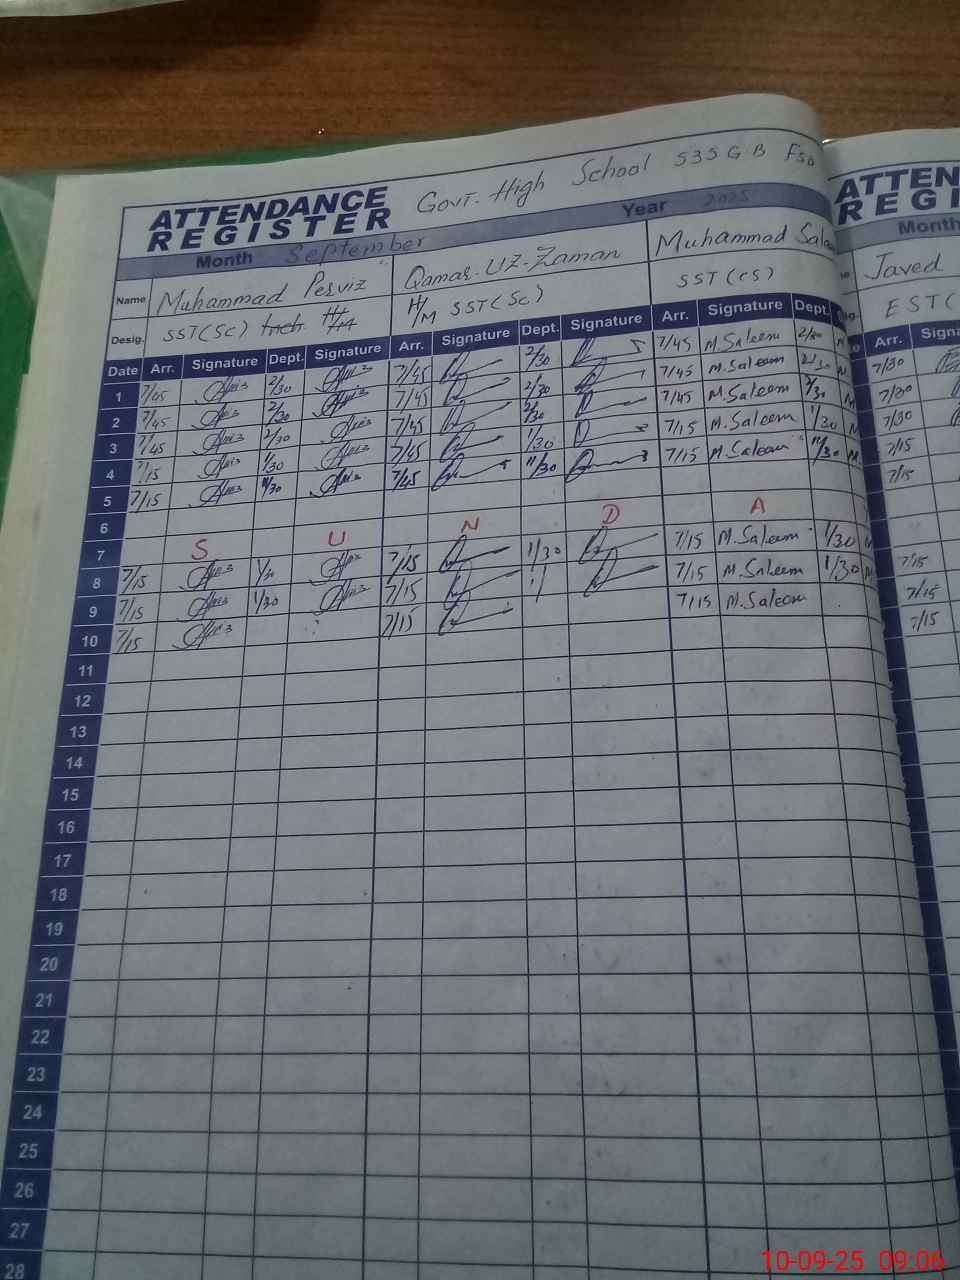 Govt. High School 535 GB Fsd
ATTENDANCE REGISTER
Month September Year 2025
Name Muhammad Perviz Qamar-UZ-Zaman Muhammad Sale
Desig. SST(Sc) Inch. H/M H/M SST(Sc) SST(CS)
Date Arr. Signature Dept. Signature Arr. Signature Dept. Signature Arr. Signature Dept.
1 7/45 2/30 7/45 2/30 7/45 M.Saleem 2/30
2 7/45 2/30 7/45 2/30 7/45 M.Saleem 2/30
3 7/45 2/30 7/45 2/30 7/45 M.Saleem 2/30
4 7/15 1/30 7/45 1/30 7/15 M.Saleem 1/30
5 7/15 11/30 7/45 11/30 7/15 M.Saleem 11/30
6
7 S U N D A
8 7/15 1/30 7/15 1/30 7/15 M.Saleem 1/30
9 7/15 1/30 7/15 7/15 M.Saleem 1/30
10 7/15 7/15 7/15 M.Saleem
11
12
13
14
15
16
17
18
19
20
21
22
23
24
25
26
27
28
ATTEN
REGI
Month
Javed
EST(
Arr. Signa
7/30
7/30
7/30
7/15
7/15
7/15
7/15
7/15
10-09-25 09:06